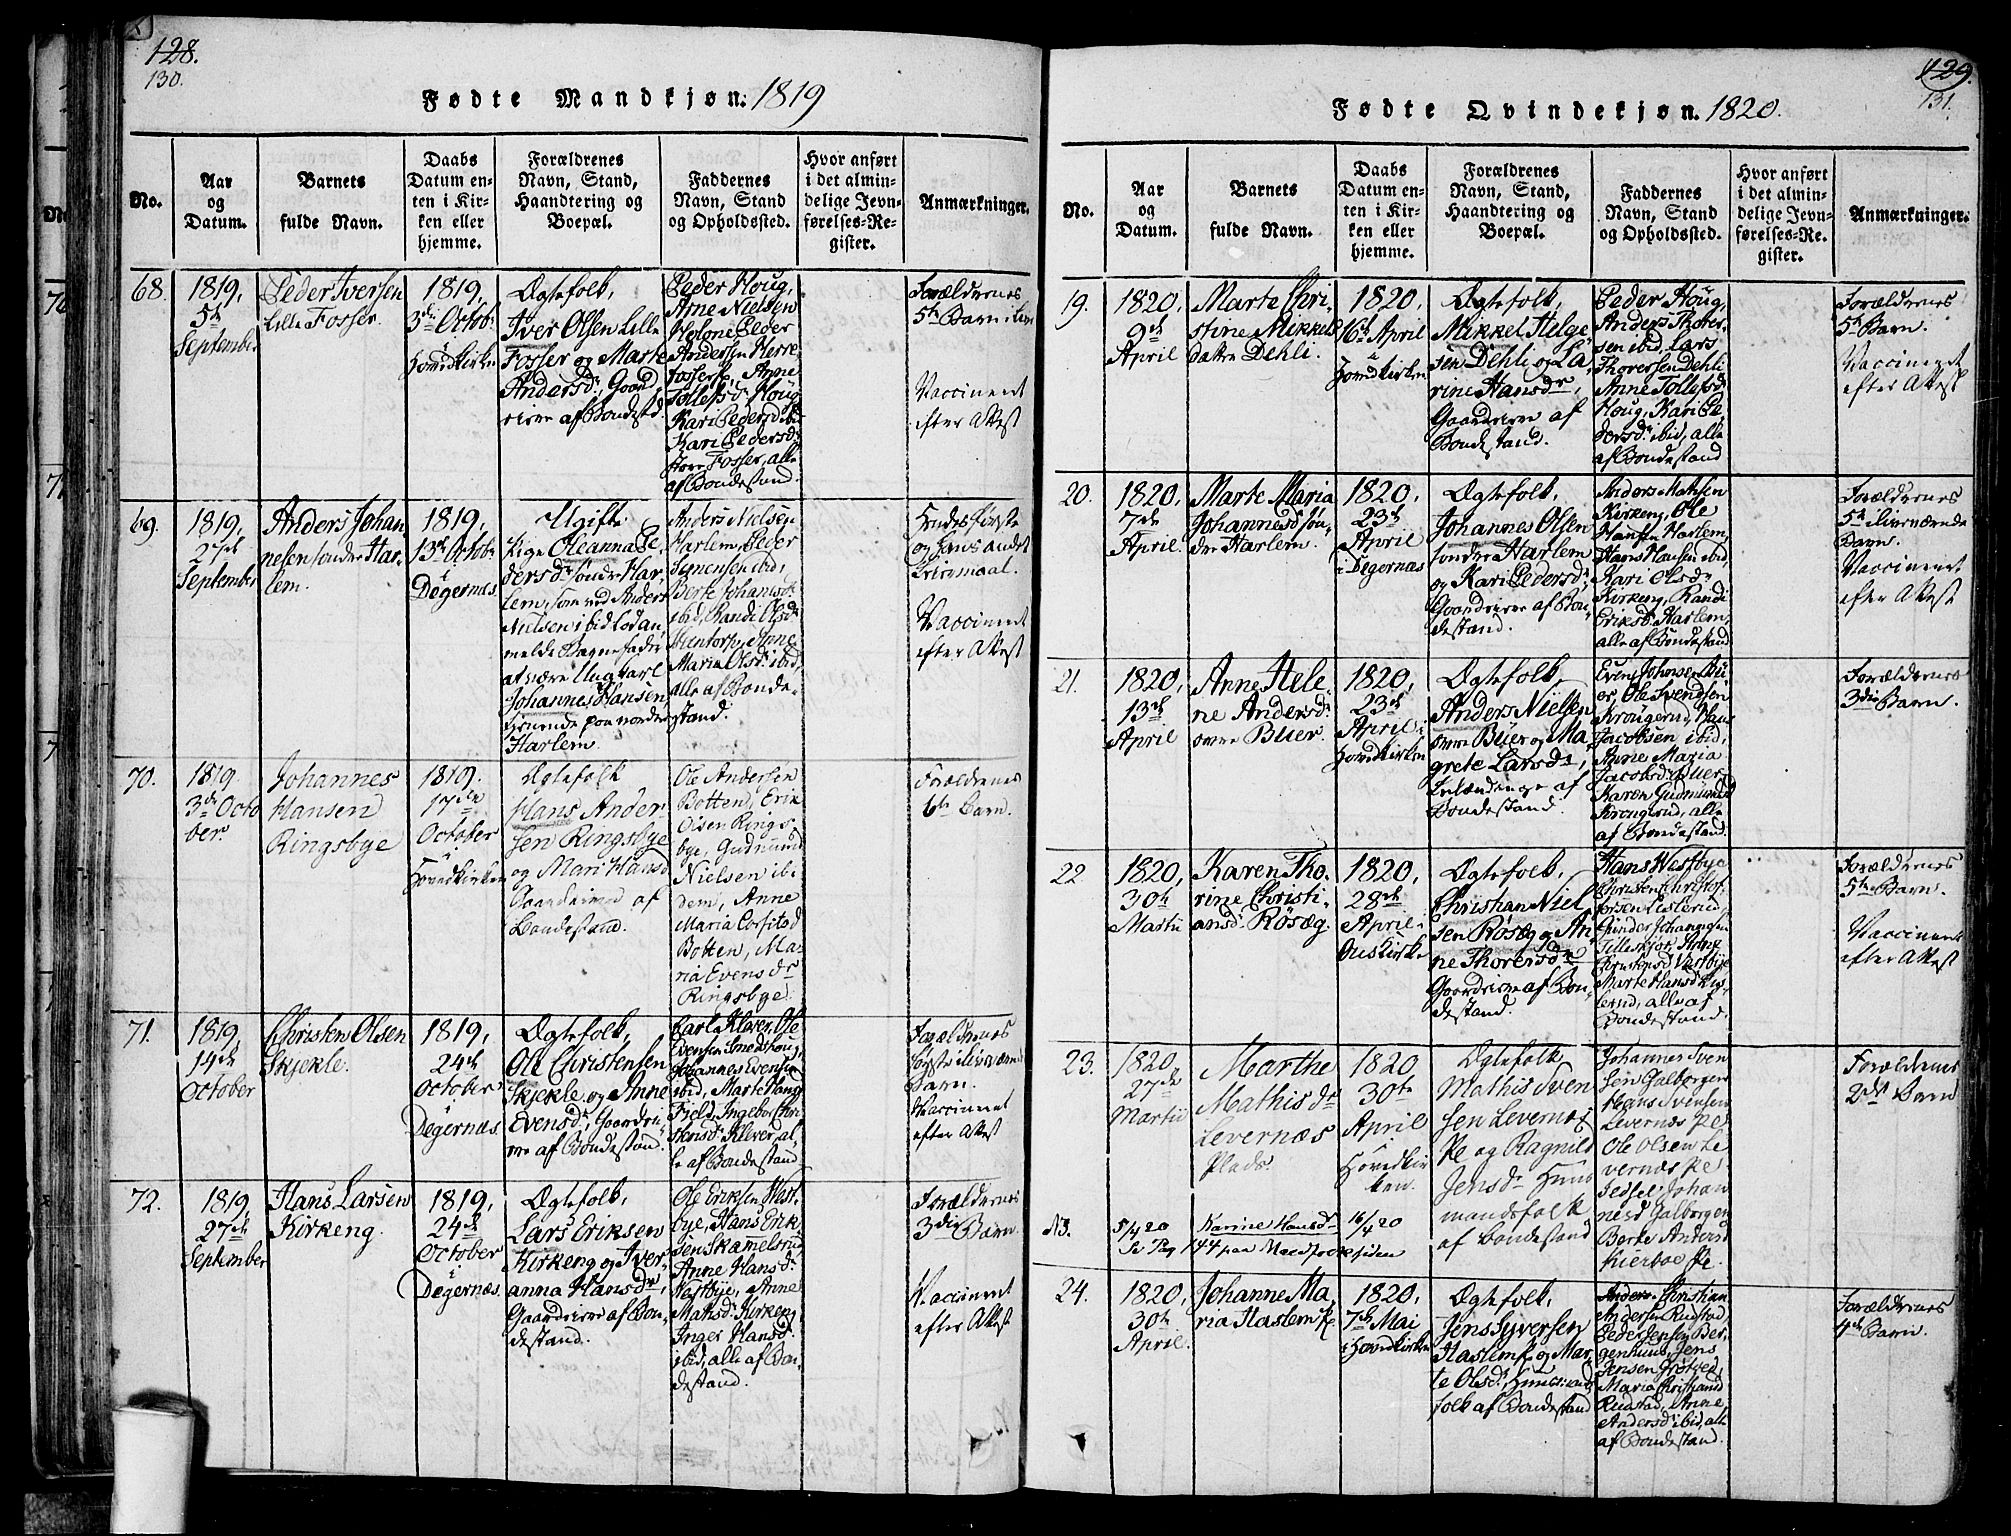 128.
130.
Fødte Mandkjøn. 1819
No.
Aar
og
Datum.
Barnets
fulde Navn.
Daabs
Datum en-
ten i Kir-
ken eller
hjemme.
Forældrenes
Navn, Stand,
Haandtering og
Boepæl.
Faddernes
Navn, Stand
og Opholdssted.
Hvor anført
i det almin-
delige Jevn-
førelses-Re-
gister.
Anmærkninger.
68.
1819,
5te
September
Peder Iversen
Lille Fosser.
1819,
3die Octobr
i
Hovedkirken
Ægtefolk,
Iver Olsen Lille
Fosser og Marte
Andersdr, Gaard-
eiere af Bondestd.
Peder Houg,
Arne Nielsen
Peder
Andersen Herre-
fosser, Anne
Tollefsdr Houg
Kari Pedersd ibid
Kari Pedersdr
store Fosser, alle
af Bondestand.
Forældrenes
5te Barn
Vaccineret
efter Attest
69.
1819,
27de
September
Anders Johan-
nesen søndre Har-
lem.
1819,
13de Octobr
i
Degernæs.
Ugifte
Pige Oleanna Pe-
dersdr søndre Har-
lem, som ved Anders
Nielsen ibid lod an-
melde Barnefader
at være Ungkarl
Johannes Hansen,
tienende paa nordre
Harlem.
Anders Nielsen
Harlem, Peder
ibid,
Berte Johannsdr
ibid, Randi Olsdr
Anne
Maria Olsdr ibid,
alle af Bonde-
stand.
Hendes første
og Hans andet
Leiermaal.
Vaccineret
efter Attest
70.
1819.
3die Octo-
ber.
Johannes
Hansen
Ringsbye
1819.
17de
October
i
Hovedkirken
Ægtefolk
Hans Ander-
sen Ringsbye
og Mari Hansd
Gaardmænd af
Bondestand.
Ole Andersen
Botten, Erik
Olsen Rings-
bye, Gudmund
Nielsen ibi-
dem, Anne
Maria Corfitsd
Botten, Ma-
ria Evensdr
Ringsbye.
Forældrenes
6te Barn.
71.
1819,
14de
October
Christen Olsen
Skjekle.
1819,
24de
October
i
Degernæs.
Ægtefolk,
Ole Christensen
Skjekle og Anne
Evensdr, Gaardei-
ere af Bondestand.
Ole
Evensen Smedshoug,
Johannes Evensen
ibid, Marte
Ingebor Chri-
stensdr Klever, al-
le af Bondestand.
Forældrenes
Barn.
Vaccineret
efter Attest
72.
1819,
27de
September
Hans Larsen
Kirkeng.
1819,
24de
October
i
Degernæs.
Ægtefolk,
Lars Eriksen
Kirkeng og Iver-
anna Hansdr,
Gaardeiere af Bon-
destand.
Ole Eriksen Vest-
bye, Hans Erik-
sen Skammelsrud
Anne Hansdr
Vestbye, Anne
Matisdr Kirkeng,
Inger Hansdr
ibid, alle af Bon-
destand.
Forældrenes
3die Barn.
Vaccineret
efter Attest
129.
131.
Fødte Qvindekjøn. 1820.
No.
Aar
og
Datum.
Barnets
fulde Navn.
Daabs
Datum en-
ten i Kir-
ken eller
hjemme.
Forældrenes
Navn, Stand,
Haandtering og
Boepæl.
Faddernes
Navn, Stand
og Opholdssted.
Hvor anført
i det almin-
delige Jevn-
førelses-Re-
gister.
Anmærkninger.
19.
1820,
9de
April
Marte Chri-
stine Mikkels-
datter Dehli.
1820,
16de April
i
Hovedkirken
Ægtefolk,
Mikkel Helge-
sen Dehli og La-
rine Hansdr,
Gaardeiere af
Bondestand.
Peder Houg,
Anders Thorer-
sen ibid, Lars
Thoversen Dehli
Anne Tollefsd
Houg, Kari Pe-
dersdr ibid, alle
af Bondestand
Forældrenes
5te Barn.
Vaccineret
efter Attest
20.
1820,
7de
April.
Marte Maria
Johannesdr søn-
dre Harlem.
1820,
23de
April
i Degernæs
Ægtefolk,
Johannes Olsen
søndre Harlem
og Kari Pedersdr
Gaardeiere af Bon-
destand.
Anders Matisen
Kirkeng, Ole
Hansen Harlem,
Hans Hansen ibid,
Kari Olsdr
Kirkeng, Randi
Eriksdr Harlem,
alle af Bondestand
Forældrenes
5te iliveværende
Barn.
Vaccineret
efter Attest
21.
1820,
13de
April
Anne Hele-
ne Andersdr
øvre Buer.
1820,
23de
April i
Hovedkirken
Ægtefolk,
Anders Nielsen
øvre Buer og Ma-
grete Larsdr,
af
Bondestand.
Even Bu-
er, Ole Svendsen
Hans
Jacobsen ibid,
Anne Maria
Jacobsdr Buer
Karen Gudmunsd
alle
af Bondestand.
Forældrenes
3die Barn.
22
1820,
30te
Martii
Karen Tho-
rine Christi-
ansdr Røsæg.
1820,
28de
April i
Ægtefolk,
Christian Niel-
sen Røsæg og An-
ne Thorersdr
Gaardeiere af Bon-
destand.
Hans Vestbye
Christen Christof-
fersen
Gunder Johannesen
Anne
Christensd Vestbye
Marte Hansdr
alle af
Bondestand.
Forældrenes
5te Barn.
Vaccineret
efter Attest
23.
1820,
27de
Martii
Marthe
Mathisdr
Levernæs
Plads.
1820
30te
April
i
Hovedkir-
ken.
Ægtefolk
Mathis Sven-
sen Levernæs
Pe og Ragnild
Jensdr Huus-
mandsfolk
af Bondestand
Johannes Sven-
sen Galborgen
Hans Svensen
Levernæs Pe
Ole Olsen Le-
vernæs Pe
Johan-
nesd Galborgen
Berte Andersd
Kierboe Pe.
Forældrenes
2det Barn
N3.
5/4 20
Se Pag 144 paa Mandfoksiden
Karine Hansdr
16/4 20
24.
1820,
30te
April.
Johanne Ma-
ria Haslem Pe.
1820,
7de Mai
i Hovedkirken
Ægtefolk,
Jens Syversen
Haslem Pe og Mar-
te Olsdr, Huusmands
folk af Bondestand
Anders Christian
Andersen Rustad,
Peder Jensen Ber-
genhuus, Jens
Jensen Grøtved,
Maria Christiansd
Rustad, Anne
Andersd ibid, alle
af Bondestand.
Forældrenes
4de Barn.